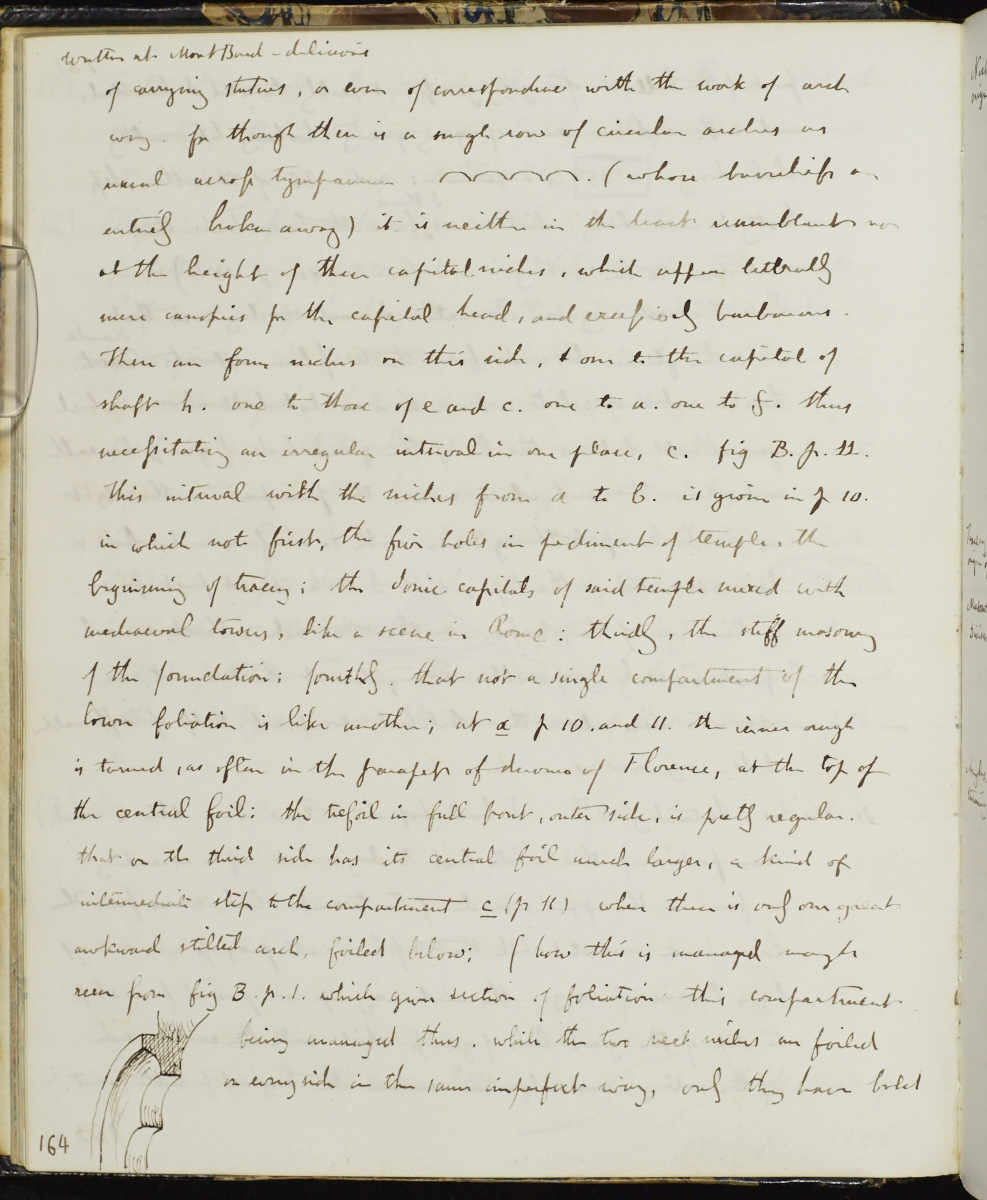 written at Mont Band - delicious
of carrying statues, or even of correspondence with the work of arch
way. for though there is a single row of circular arches as
usual across tympanum (whose basreliefs are
entirely broken away) it is neither in the least resemblant nor
at the height of these capital niches, which appear literally
mere canopies for the capital head, and excessively barbarous.
There are four niches on this side, & one to the capital of
shaft h. one to those of e and c. one to a. one to f. thus
necessitating an irregular interval in one place, c. fig B. p. 11.
This interval with the niches from a to b. is given in p 10.
in which note first, the five holes in pediment of temple, the
beginning of tracery; the Ionic capitals of said temple mixed with
mediaeval towers, like a scene in Rome: thirdly, the stiff masonry
of the foundation; fourthly. that not a single compartment of the
lower foliation is like another; at a p 10. and 11. the inner ough
is turned, as often in the parapets of duomo of Florence, at the top of
the central foil: the trefoil in full front, outer side, is pretty regular.
that on the third side has its central foil much larger, a kind of
intermediate step to the compartment c (p 11) where there is only one great
awkward stilted arch, foiled below; (how this is managed may be
seen from fig B. p. 1. which gives section of foliation this compartment
being managed thus. while the two next niches are foiled
on every side in the same imperfect way, only they have bold
164